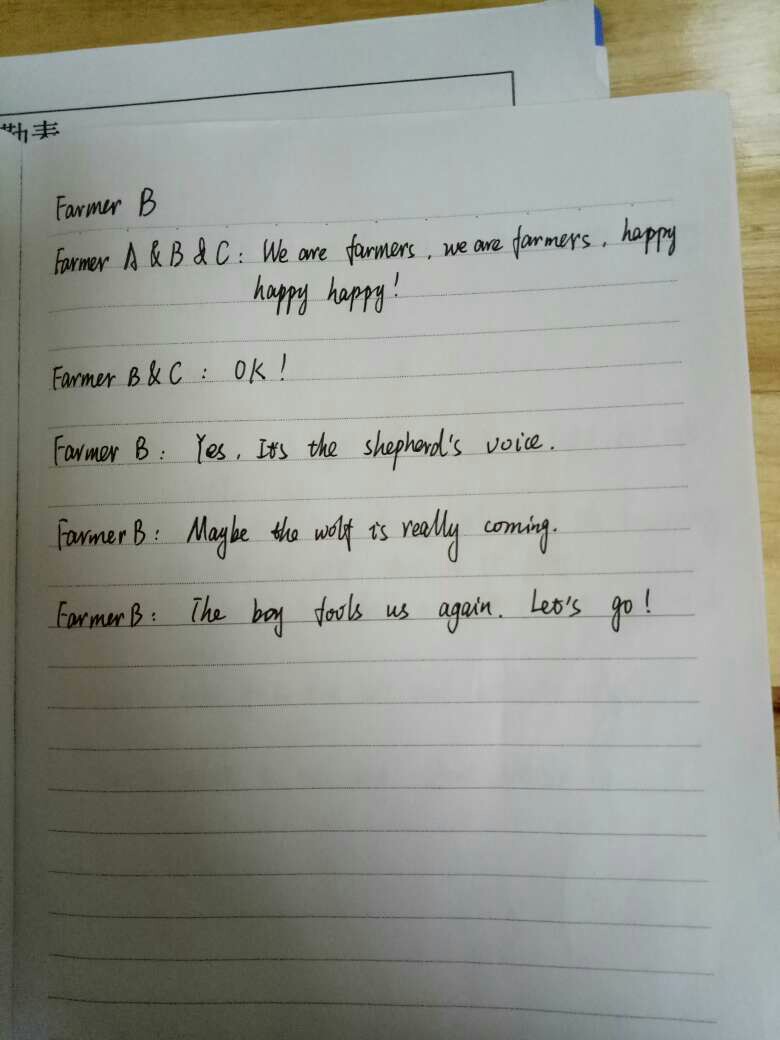 勤表
Farmer B
Farmer A & B & C: We are farmers, we are farmers, happy
happy happy!
Farmer B & C : OK!
Farmer B: Yes, It's the shepherd's voice.
Farmer B: Maybe the wolf is really coming.
Farmer B: The boy fools us again. Let's go!